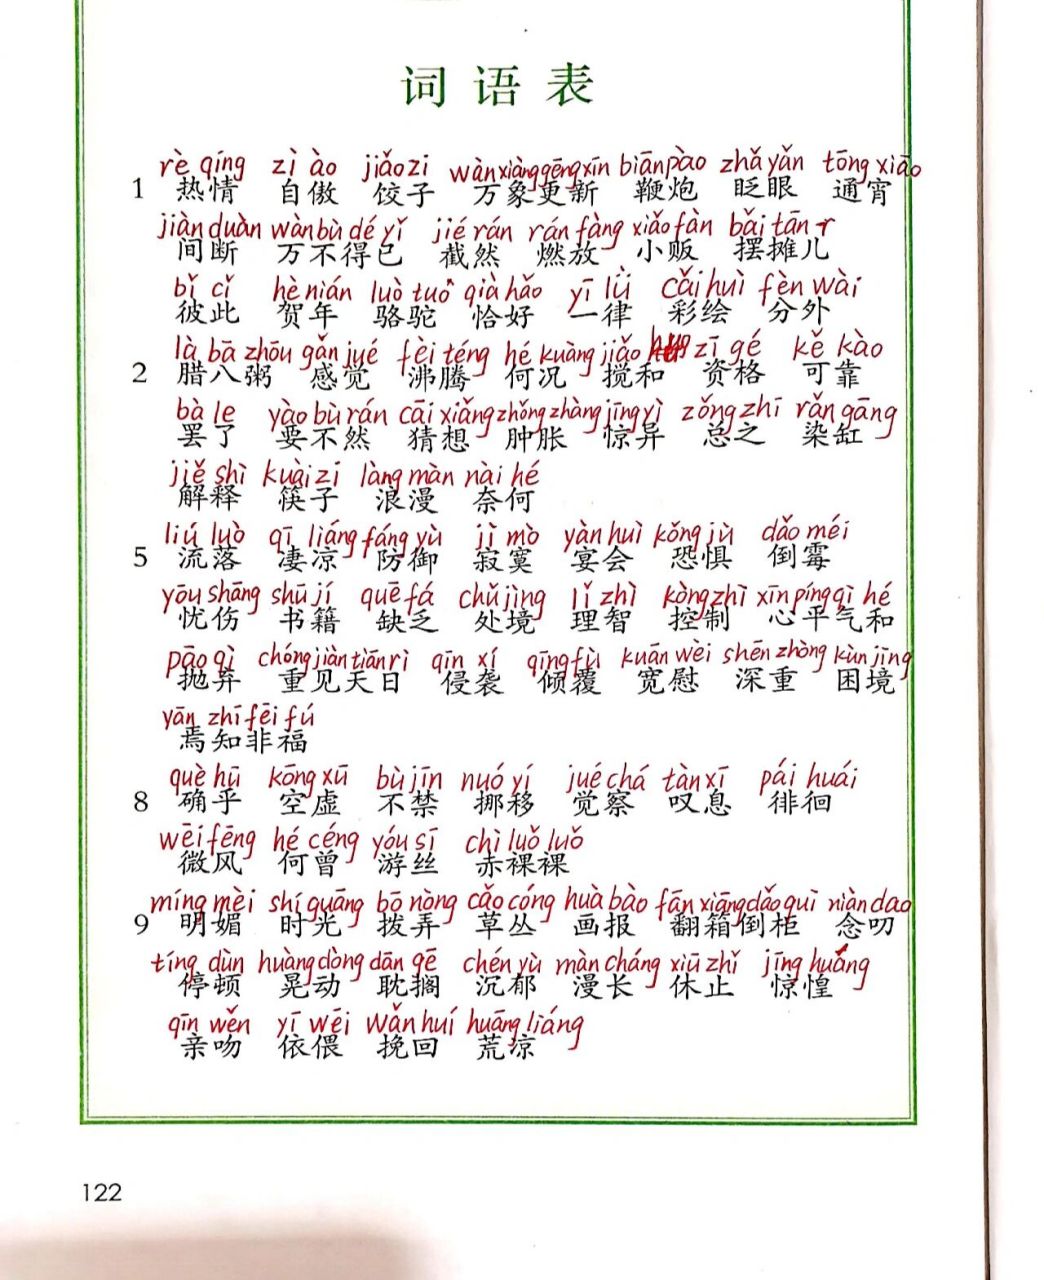 词语表
rè qíng zì ào jiǎo zi wàn xiàng gēng xīn biān pào zhǎ yǎn tōng xiāo
1 热情 自傲 饺子 万象更新 鞭炮 眨眼 通宵
jiàn duàn wàn bù dé yǐ jié rán rán fàng xiǎo fàn bǎi tān r
间断 万不得已 截然 燃放 小贩 摆摊儿
bǐ cǐ hè nián luò tuó qià hǎo yī lǜ cǎi huì fèn wài
彼此 贺年 骆驼 恰好 一律 彩绘 分外
là bā zhōu gǎn jué fèi téng hé kuàng jiǎo zī gé kě kào
2 腊八粥 感觉 沸腾 何况 搅和 资格 可靠
bà le yào bù rán cāi xiǎng zhǒng zhàng jīng yì zǒng zhī rǎn gāng
罢了 要不然 猜想 肿胀 惊异 总之 染缸
jiě shì kuài zi làng màn nài hé
解释 筷子 浪漫 奈何
liú luò qī liáng fáng yù jì mò yàn huì kǒng jù dǎo méi
5 流落 凄凉 防御 寂寞 宴会 恐惧 倒霉
yōu shāng shū jí quē fá chǔ jìng lǐ zhì kòng zhì xīn píng qì hé
忧伤 书籍 缺乏 处境 理智 控制 心平气和
pāo qì chóng jiàn tiān rì qīn xí qīng fù kuān wèi shēn zhòng kùn jìng
抛弃 重见天日 侵袭 倾覆 宽慰 深重 困境
yān zhī fēi fú
焉知非福
què hū kōng xū bù jīn nuó yí jué chá tàn xī pái huái
8 确乎 空虚 不禁 挪移 觉察 叹息 徘徊
wēi fēng hé céng yóu sī chì luǒ luǒ
微风 何曾 游丝 赤裸裸
míng mèi shí guāng bō nòng cǎo cóng huà bào fān xiāng dǎo guì niàn dao
9 明媚 时光 拨弄 草丛 画报 翻箱倒柜 念叨
tíng dùn huàng dòng dān gē chén yù màn cháng xiū zhǐ jīng huáng
停顿 晃动 耽搁 沉郁 漫长 休止 惊惶
qīn wěn yī wēi wǎn huí huāng liáng
亲吻 依偎 挽回 荒凉
122